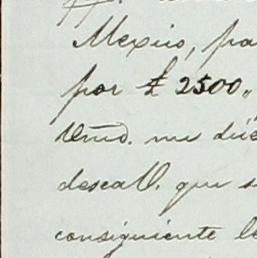 Mexico, pa
por £ 2500,,
Umd. me di
desea U. que s
consiguiente le